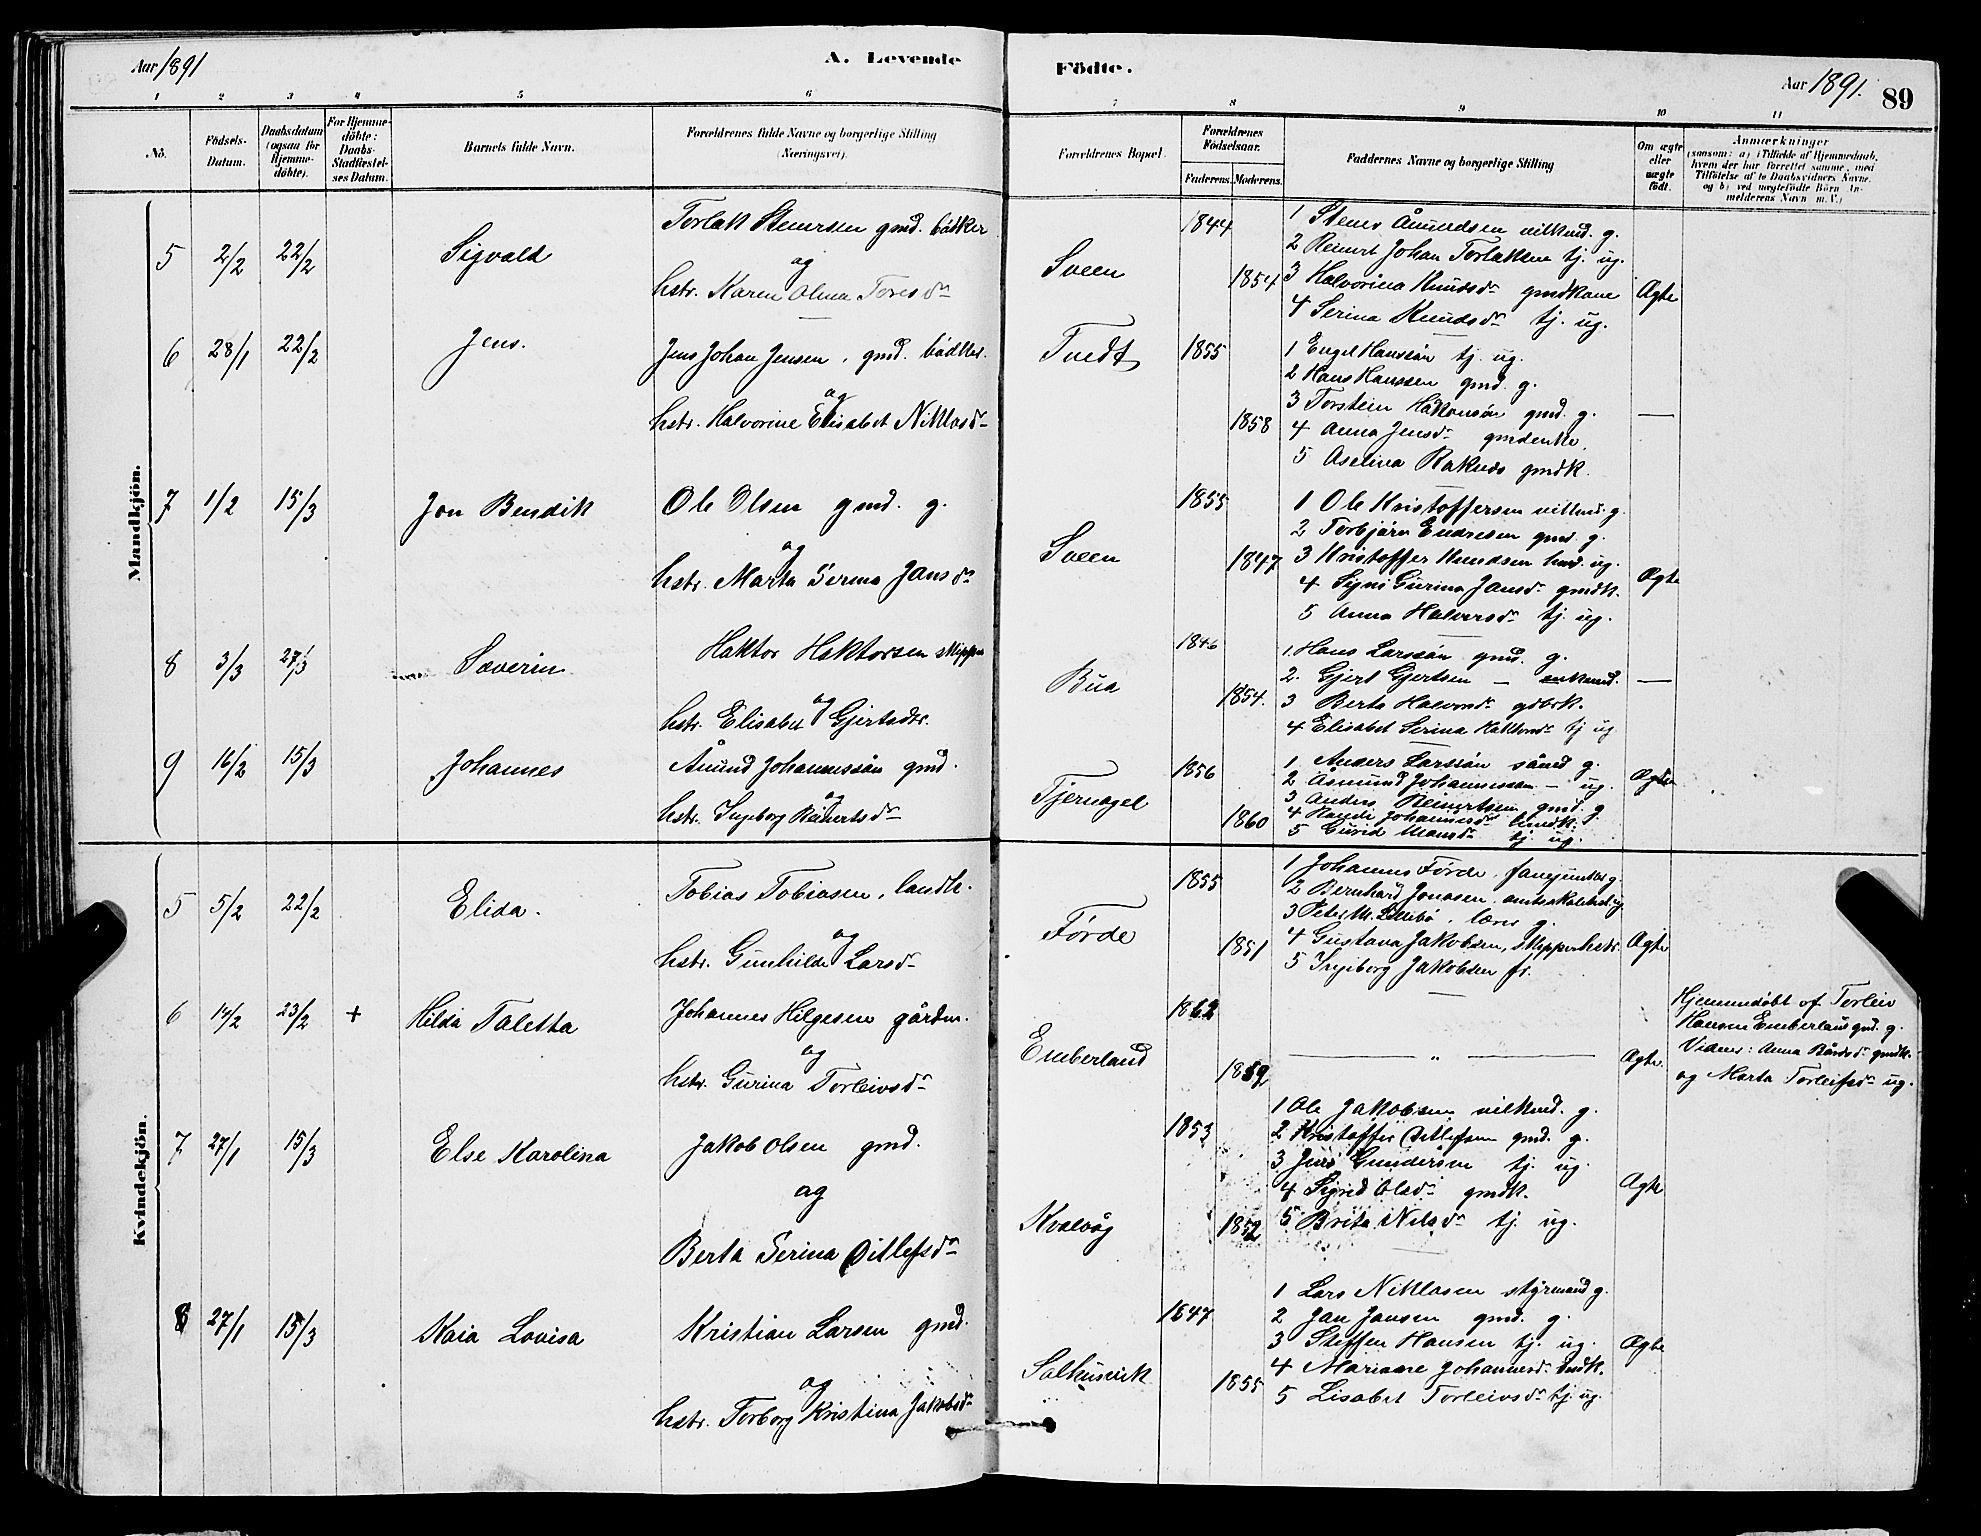 Aar 1891
A. Levende
Födte.
Aar 1891.
89
1 2 3 4 5 6 7 8 9 10 11
No.
Födsels-Datum.
Daabsdatum (ogsaa for Hjemme-döbte).
For Hjemme-döbte: Daabs-Stadfæstel-ses Datum.
Barnets fulde Navn.
Forældrenes fulde Navne og borgerlige Stilling (Næringsvei).
Forældrenes Bopæl.
Forældrenes Födselsaar.
Faderens. Moderens.
Faddernes Navne og borgerlige Stilling
Om ægte eller uægte födt.
Anmærkninger
(saasom: a) i Tilfælde af Hjemmedaab, hvem der har forrettet samme, med Tilföielse af to Daabsvidners Navne, og b) ved uægtefödte Börn An-melderens Navn m. V.)
Mandkjön.
5 2/2 22/2 Sigvald
Torlak Stenersen gmd. bödker
og
hstr. Karen Olena Toresdr
Sveen
1844
1854
1 Stener Åmundsen vilkmd. g.
2 Reinert Johan Torlaksen tj. ug.
3 Halvorina Knudsdr gmdkone
4 Serina Knudsdr tj. ug.
Ægte
6 28/1 22/2 Jens.
Jens Johan Jensen, gmd. bödker.
og
hstr. Halvorine Elisabet Niklasdr
Tvedt
1855
1858
1 Engel Hanssön tj. ug.
2 Hans Hanssen gmd. g.
3 Torstein Håkonsön gmd. g.
4 Anna Jensdr gmdenke.
5 Aselina Raknes gmdk.
—
7 1/2 15/3 Jon Bendik
Ole Olsen gmd. g.
og
hstr. Marta Serina Jansdr
Sveen
1855
1847
1 Ole Kristoffersen vilkmd. g.
2 Torbjörn Endresen gmd. g.
3 Kristoffer Knudsen hmd. ug.
4 Signi Gurina Jansdr gmdk.
5 Anna Halvorsdr tj. ug.
Ægte
8 3/3 27/3 Severin
Haktor Haktorsen skipper
og
hstr. Elisabet Gjertsdtr.
Bua
1846
1854.
1. Hans Larssön gmd. g.
2. Gjert Gjertsen — enkemd.
3 Berta Halvorsdr gdbrk.
4 Elisabet Serina Haktorsdr tj ug
—
9 16/2 15/3 Johannes
Åmund Johannessön gmd.
og
hstr. Ingeborg Reinertsdr
Tjernagel
1856
1860
1 Anders Larssön g.
2 Åsmund Johannessen — ug.
3 Anders Reinertsen gmd. g
4 Johannesdr
5 Gurid Mansdr tj. ug.
Ægte
Kvindekjön.
5 5/2 22/2 Elida.
Tobias Tobiasen, landh.
og
hstr. Gunhilde Larsdr
Förde
1855
1851
1 Johannes Förde, g.
2 Bernhard Jonasen, ug
3 Peter M. lærer g.
4 Gustava Jakobsen, skipperhstr.
5 Ingeborg Jakobsen fr.
Ægte
6 14/2 23/2 + Hilda Taletta
Johannes Hilgesen gårdm.
og
hstr. Gurina Torleivsdr
Emberland
1862
1859
— „ —
Ægte
Hjemmedöbt af Torleiv
Hansen Emberland gmd. g.
Vidner: Anna Bårdsdr gmdk.
og Marta Torleifsdr ug.
7 27/1 15/3 Else Karolina
Jakob Olsen gmd.
og
Berta Serina Ditlefsdr
Kvalvåg
1853
1852
1 Ole Jakobsen vilkmd. g.
2 Kristoffer Ditlefsen gmd. g.
3 Jens Gundersen tj. ug.
4 Sigrid Olsdr gmdk.
5 Brita Nilsdr tj. ug.
Ægte
8 27/1 15/3 Kaia Lovisa
Kristian Larsen gmd.
og
hstr. Torborg Kristina Jakobsdr
Salhusvik
1847
1855
1 Lars Niklasen styrmand g.
2 Jan Jansen gmd. g.
3 Steffen Hansen tj. ug.
4 Mariane Johannesdr gmdk.
5 Lisabet Torleivsdr tj. ug.
Ægte